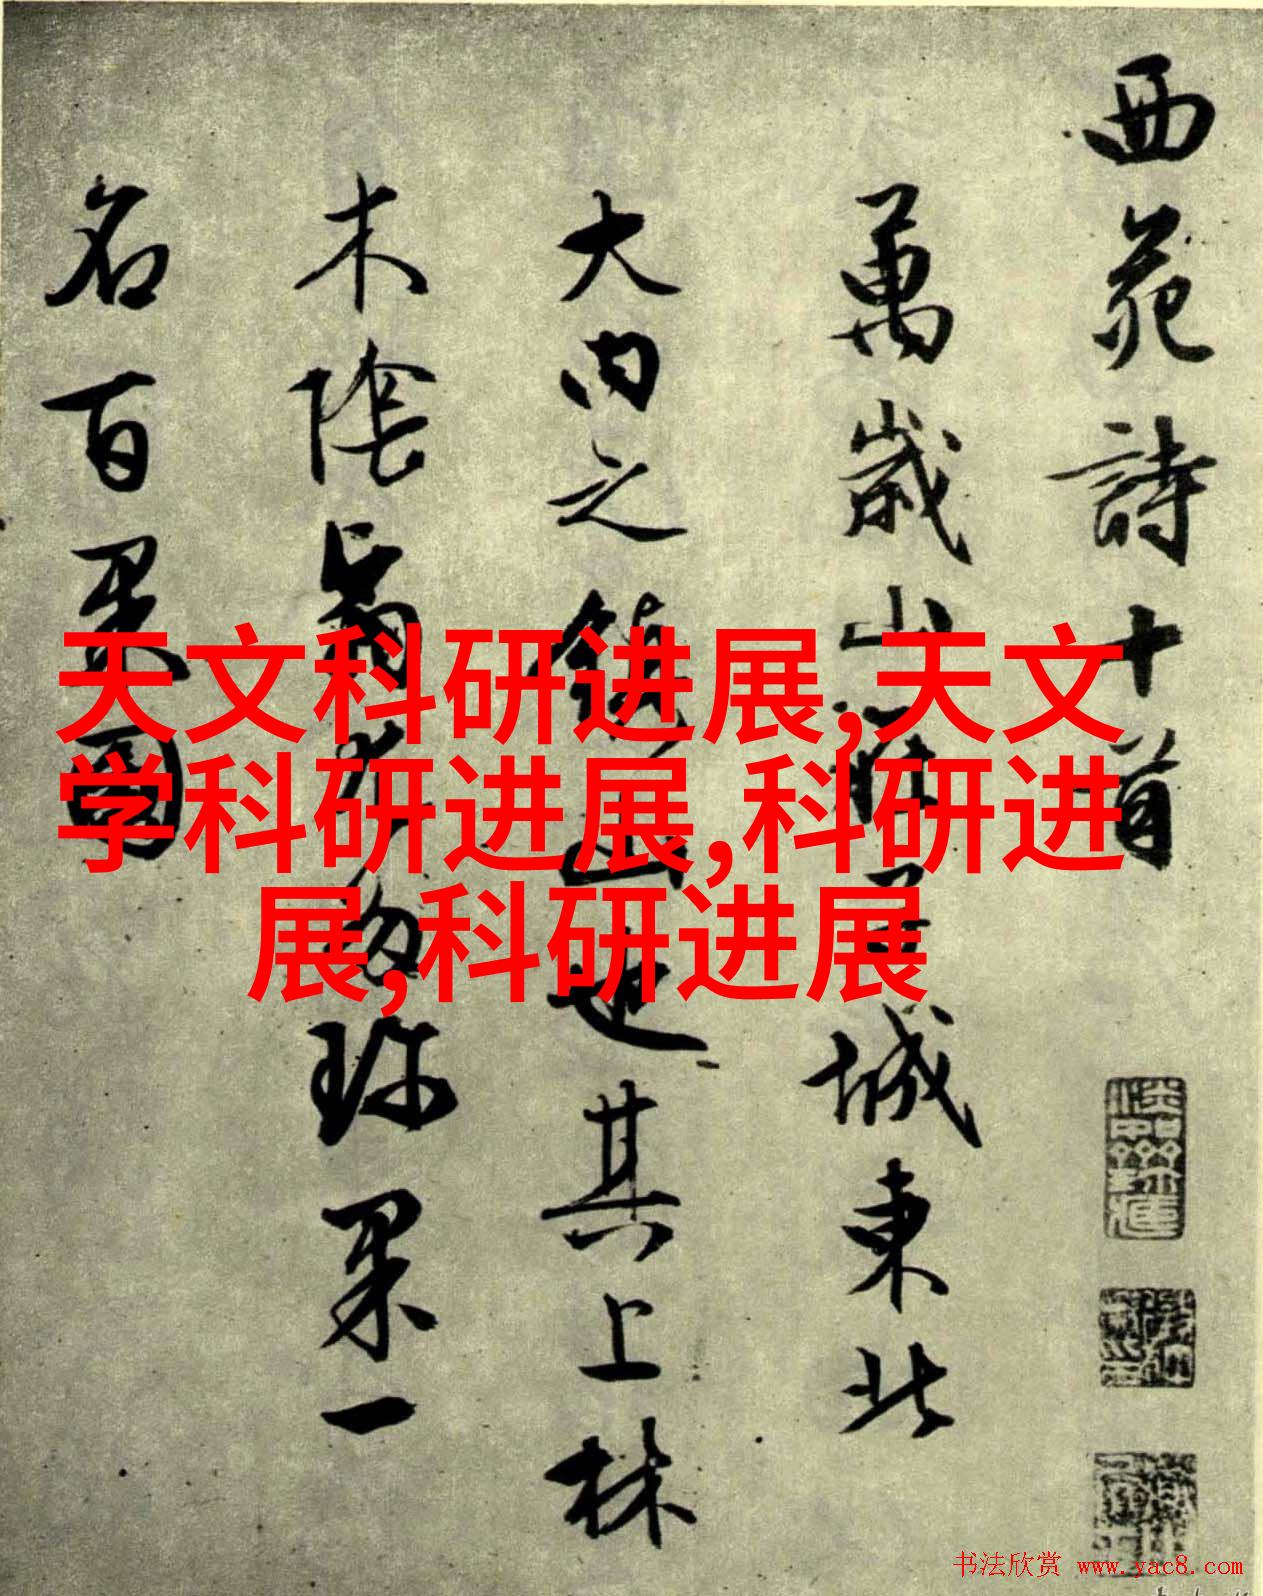 西苑詩十首
萬歲山在皇城東北
大内之鎮山也其上林
木陰翳尤多珍果一
名百果園
天文科研进展,天文
学科研进展,科研进
展,科研进展
书法欣赏 www.yac8.com